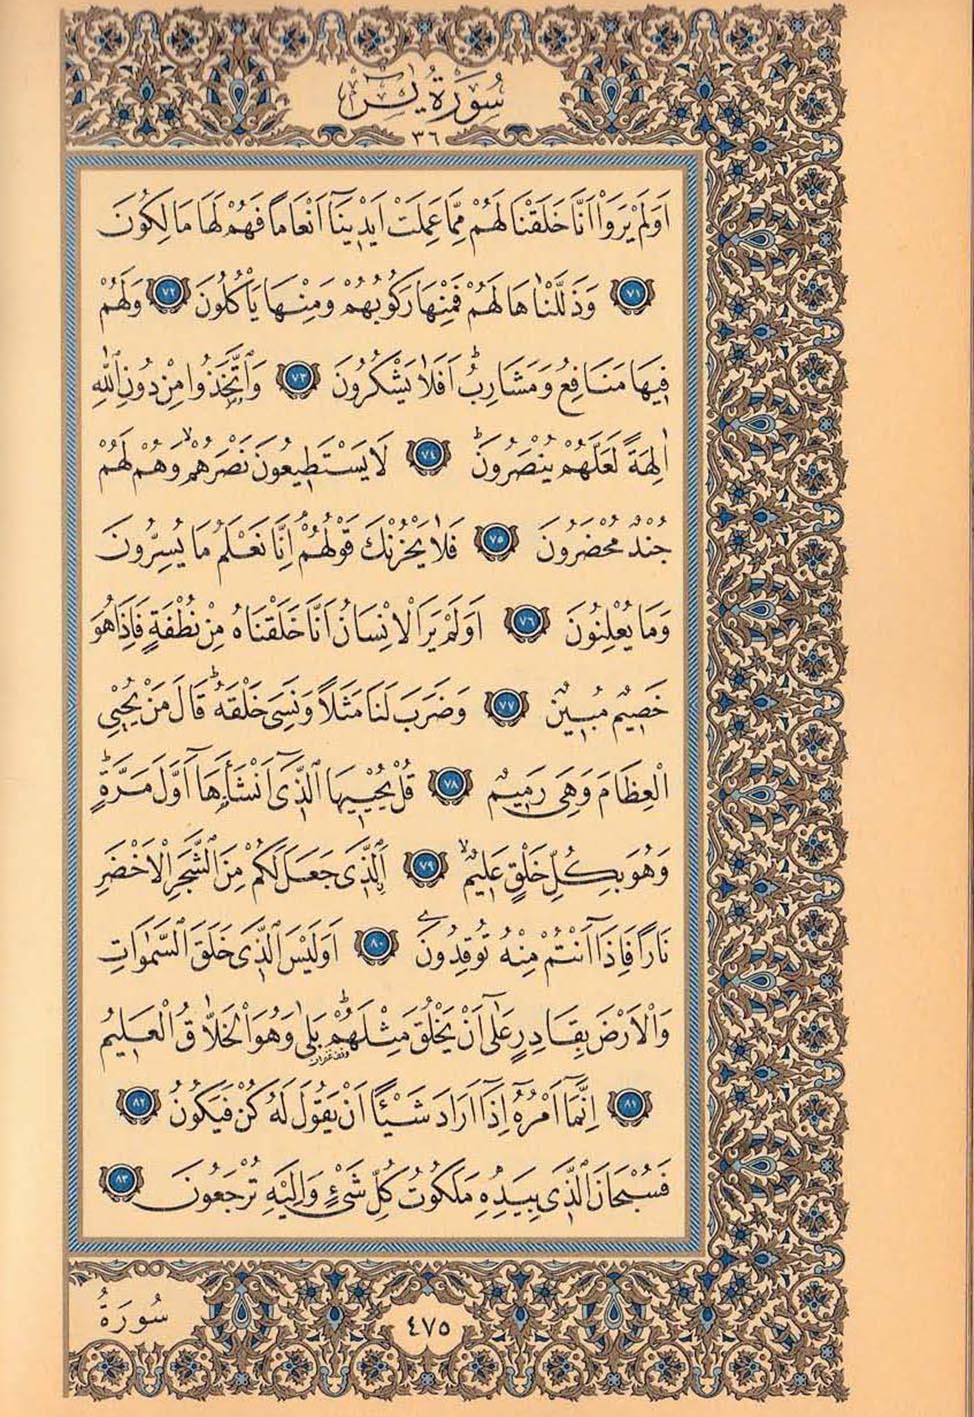 سُورَةُ يٰسٓ
٣٦
اَوَلَمْ يَرَوْا اَنَّا خَلَقْنَا لَهُمْ مِمَّا عَمِلَتْ اَيْدٖينَٓا اَنْعَامًا فَهُمْ لَهَا مَالِكُونَ
﴿٧١﴾ وَذَلَّلْنَاهَا لَهُمْ فَمِنْهَا رَكُوبُهُمْ وَمِنْهَا يَأْكُلُونَ ﴿٧٢﴾ وَلَهُمْ
فٖيهَا مَنَافِعُ وَمَشَارِبُۜ اَفَلَا يَشْكُرُونَ ﴿٧٣﴾ وَاتَّخَذُوا مِنْ دُونِ اللّٰهِ
اٰلِهَةً لَعَلَّهُمْ يُنْصَرُونَۜ ﴿٧٤﴾ لَا يَسْتَطٖيعُونَ نَصْرَهُمْۙ وَهُمْ لَهُمْ
جُنْدٌ مُحْضَرُونَ ﴿٧٥﴾ فَلَا يَحْزُنْكَ قَوْلُهُمْۢ اِنَّا نَعْلَمُ مَا يُسِرُّونَ
وَمَا يُعْلِنُونَ ﴿٧٦﴾ اَوَلَمْ يَرَ الْاِنْسَانُ اَنَّا خَلَقْنَاهُ مِنْ نُطْفَةٍ فَاِذَا هُوَ
خَصٖيمٌ مُبٖينٌ ﴿٧٧﴾ وَضَرَبَ لَنَا مَثَلًا وَنَسِيَ خَلْقَهُۜ قَالَ مَنْ يُحْيِي
الْعِظَامَ وَهِيَ رَمٖيمٌ ﴿٧٨﴾ قُلْ يُحْيٖيهَا الَّذٖٓي اَنْشَاَهَٓا اَوَّلَ مَرَّةٍۜ
وَهُوَ بِكُلِّ خَلْقٍ عَلٖيمٌۙ ﴿٧٩﴾ اَلَّذٖي جَعَلَ لَكُمْ مِنَ الشَّجَرِ الْاَخْضَرِ
نَارًا فَاِذَٓا اَنْتُمْ مِنْهُ تُوقِدُونَ ﴿٨٠﴾ اَوَلَيْسَ الَّذٖي خَلَقَ السَّمٰوَاتِ
وَالْاَرْضَ بِقَادِرٍ عَلٰٓى اَنْ يَخْلُقَ مِثْلَهُمْۜ بَلٰى وَهُوَ الْخَلَّاقُ الْعَلٖيمُ
وقف غفران
﴿٨١﴾ اِنَّمَٓا اَمْرُهُٓ اِذَٓا اَرَادَ شَيْـًٔا اَنْ يَقُولَ لَهُ كُنْ فَيَكُونُ ﴿٨٢﴾
فَسُبْحَانَ الَّذٖي بِيَدِهٖ مَلَكُوتُ كُلِّ شَيْءٍ وَاِلَيْهِ تُرْجَعُونَ ﴿٨٣﴾
٤٧٥
سُورَةُ